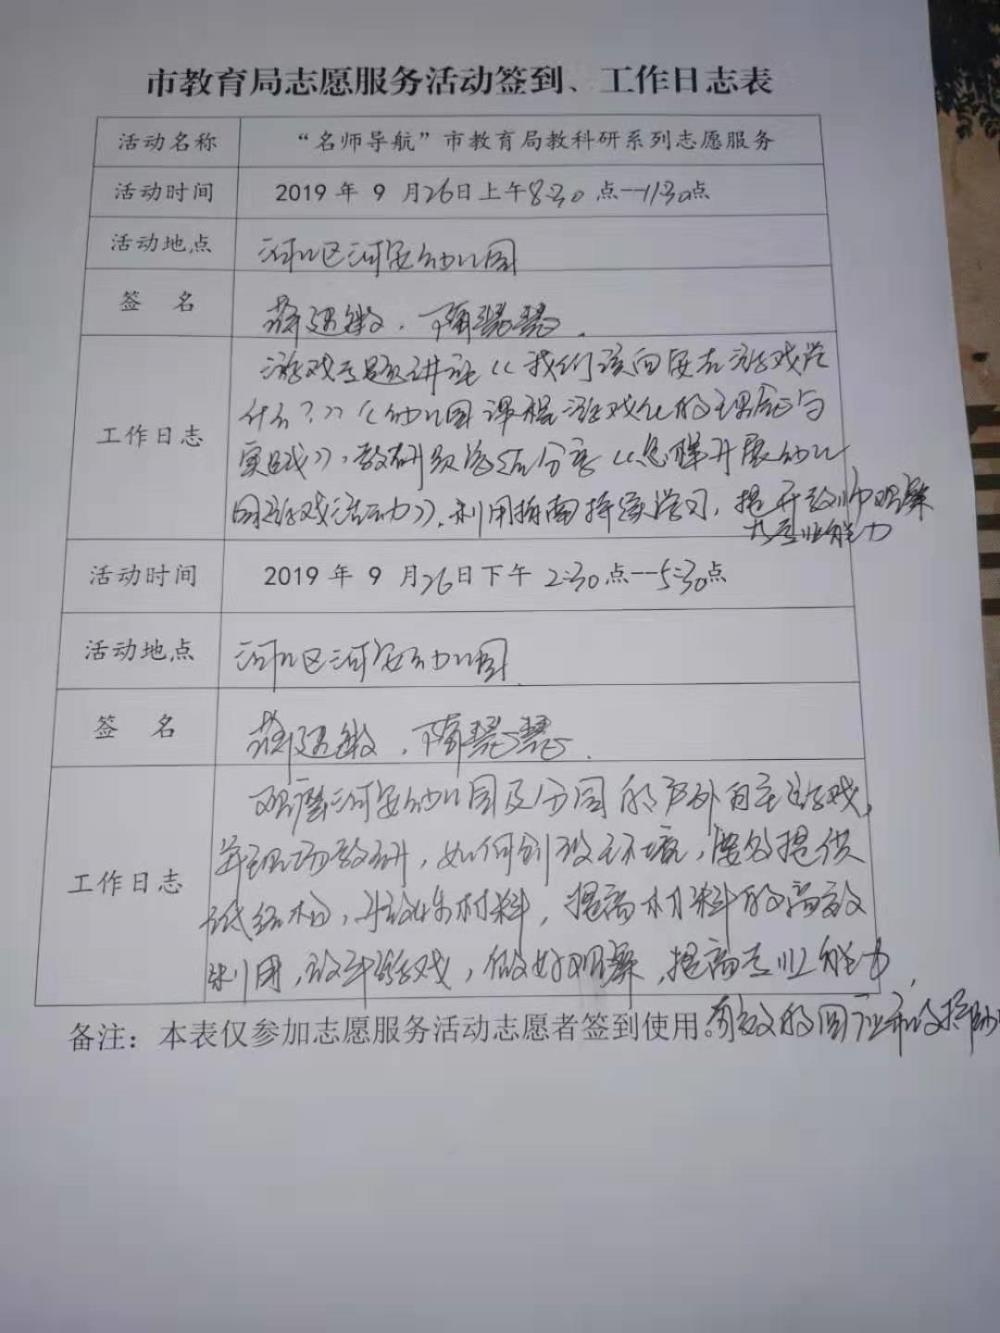 市教育局志愿服务活动签到、工作日志表
活动名称 “名师导航”市教育局教科研系列志愿服务
活动时间 2019 年 9 月26日上午8:30 点—11:30点
活动地点 河北区河安幼儿园
签 名
工作日志 游戏专题讲座《我们该向安吉游戏学
什么?》《幼儿园课程游戏化的理念与
实践》,教研员总结分享《怎样开展幼儿
园游戏活动》,利用指南持续学习,提升教师观察
专业能力
活动时间 2019 年 9 月26日下午 2:30点—5:30点
活动地点 河北区河安幼儿园
签 名
工作日志 观摩河安幼儿园及分园的户外自主游戏,
并现场教研,如何创设环境,提供
材料,提高材料的高效
利用,游戏,做好观察,提高专业能力,
备注:本表仅参加志愿服务活动志愿者签到使用。
有效的回应和支持